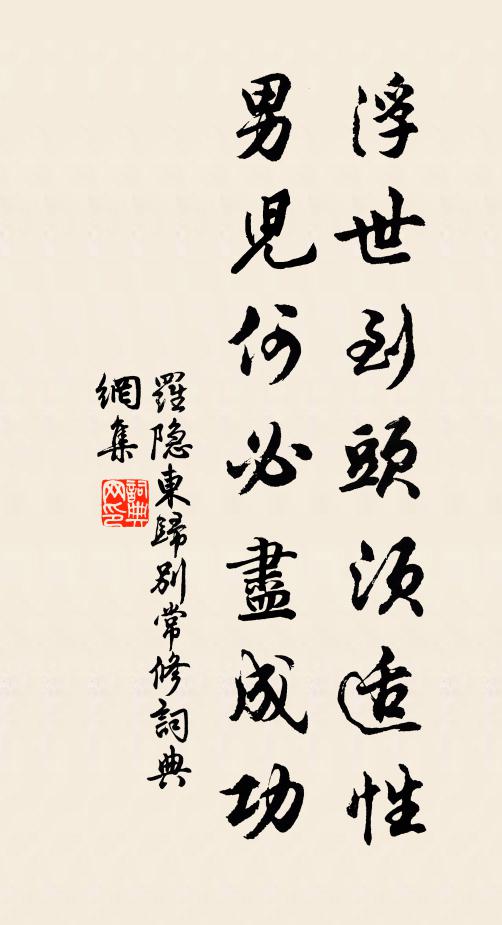 浮世到頭須适性
男兒何必盡成功
羅隐東歸别常修詞典
網集
詞典
网印